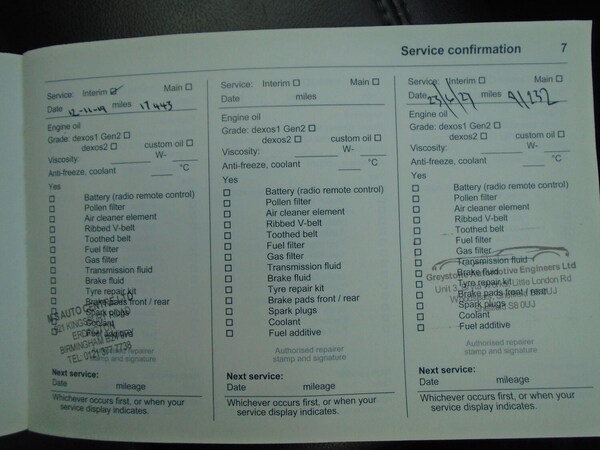 Service confirmation 7
Service: Interim ☑ Main ☐
Date 12-11-19 miles 17443
Engine oil
Grade: dexos1 Gen2 ☐
dexos2 ☐ custom oil ☐
Viscosity: W-
Anti-freeze, coolant °C
Yes
☐ Battery (radio remote control)
☐ Pollen filter
☐ Air cleaner element
☐ Ribbed V-belt
☐ Toothed belt
☐ Fuel filter
☐ Gas filter
☐ Transmission fluid
☐ Brake fluid
☐ Tyre repair kit
☐ Brake pads front / rear
☐ Spark plugs
☐ Coolant
☐ Fuel additive
AUTO
KINGS
BIRMINGHAM
TEL. 0121 377 7738
Authorised repairer
stamp and signature
Next service:
Date mileage
Whichever occurs first, or when your
service display indicates.
Service: Interim ☐ Main ☐
Date miles
Engine oil
Grade: dexos1 Gen2 ☐
dexos2 ☐ custom oil ☐
Viscosity: W-
Anti-freeze, coolant °C
Yes
☐ Battery (radio remote control)
☐ Pollen filter
☐ Air cleaner element
☐ Ribbed V-belt
☐ Toothed belt
☐ Fuel filter
☐ Gas filter
☐ Transmission fluid
☐ Brake fluid
☐ Tyre repair kit
☐ Brake pads front / rear
☐ Spark plugs
☐ Coolant
☐ Fuel additive
Authorised repairer
stamp and signature
Next service:
Date mileage
Whichever occurs first, or when your
service display indicates.
Service: Interim ☐ Main ☐
Date miles
Engine oil
Grade: dexos1 Gen2 ☐
dexos2 ☐ custom oil ☐
Viscosity: W-
Anti-freeze, coolant °C
Yes
☐ Battery (radio remote control)
☐ Pollen filter
☐ Air cleaner element
☐ Ribbed V-belt
☐ Toothed belt
☐ Fuel filter
☐ Gas filter
☐ Transmission fluid
☐ Brake fluid
☐ Tyre repair kit
☐ Brake pads front / rear
☐ Spark plugs
☐ Coolant
☐ Fuel additive
Greystones Automotive Engineers Ltd
Unit 3 Works Little London Rd
S8 0UJ
Authorised repairer
stamp and signature
Next service:
Date mileage
Whichever occurs first, or when your
service display indicates.